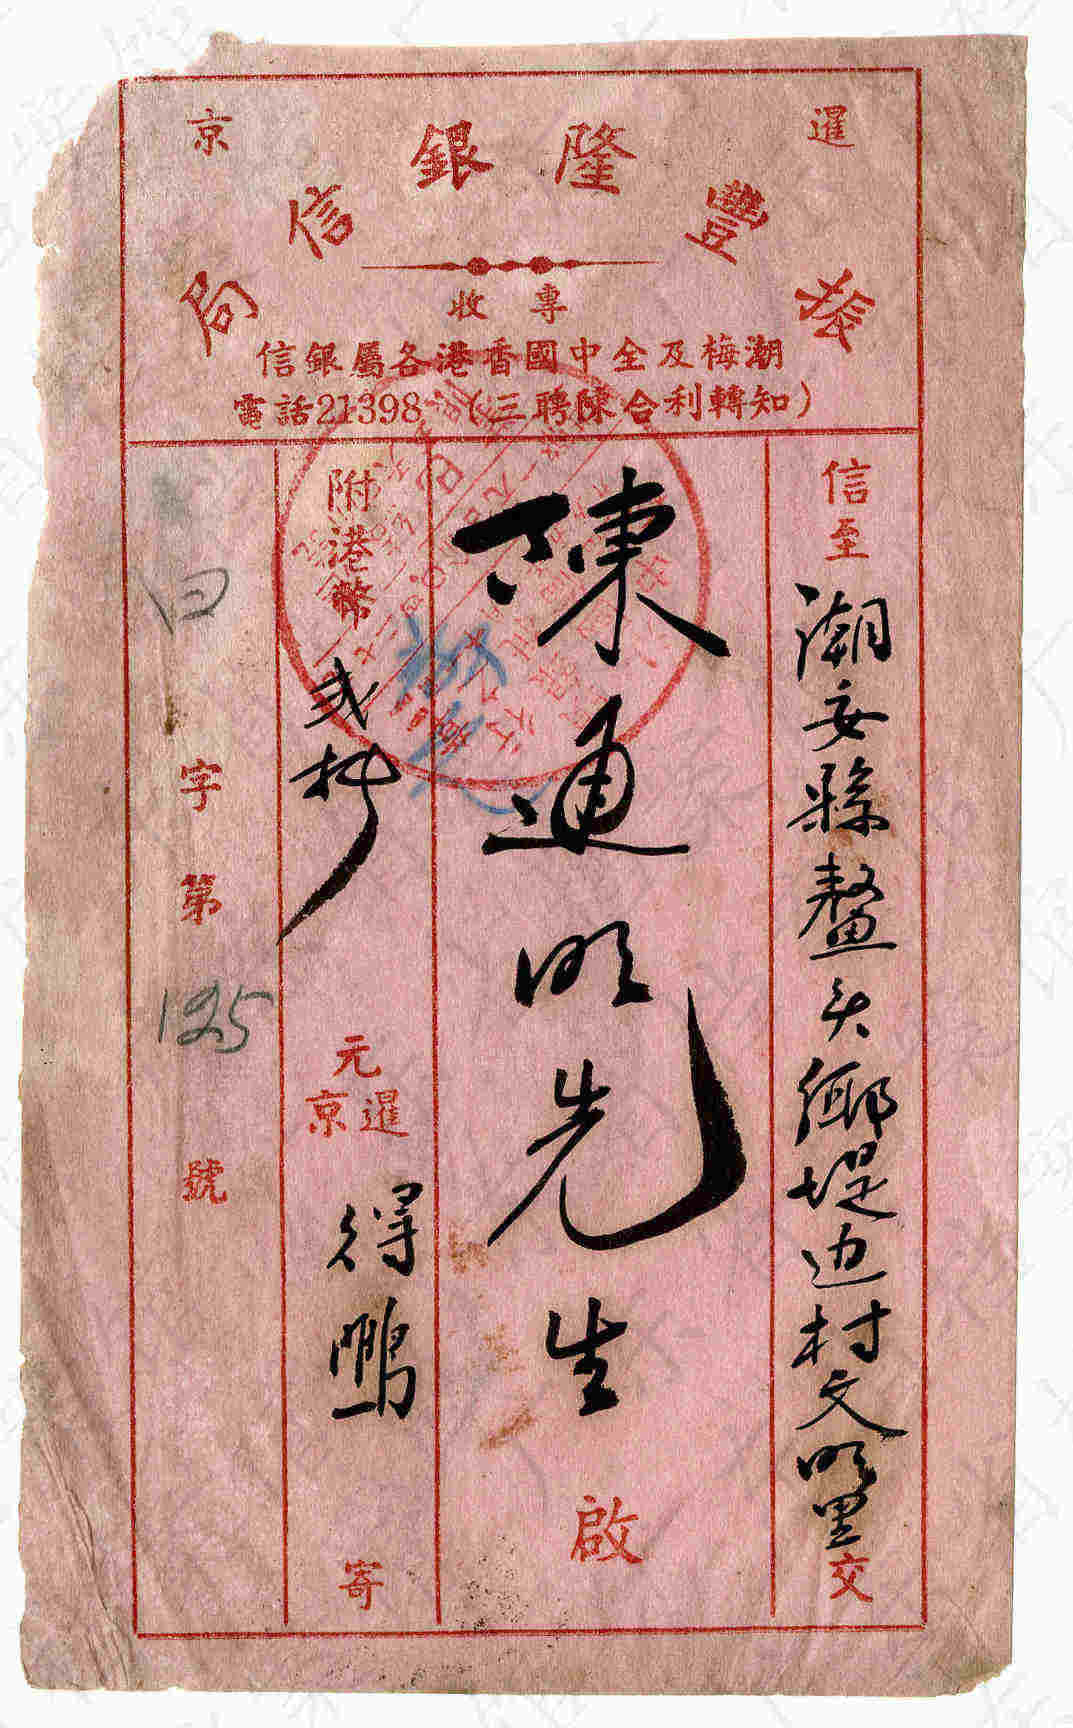 暹京
豐隆銀信局
專收
潮梅及全中國香港各屬銀信
電話21398 (三聘陳合利轉知)
信至 潮安縣鰲头鄉堤边村文明里 交
陳通明先生 啟
附港幣 弍拾 元
暹京 得鵬 寄
字第 125 號